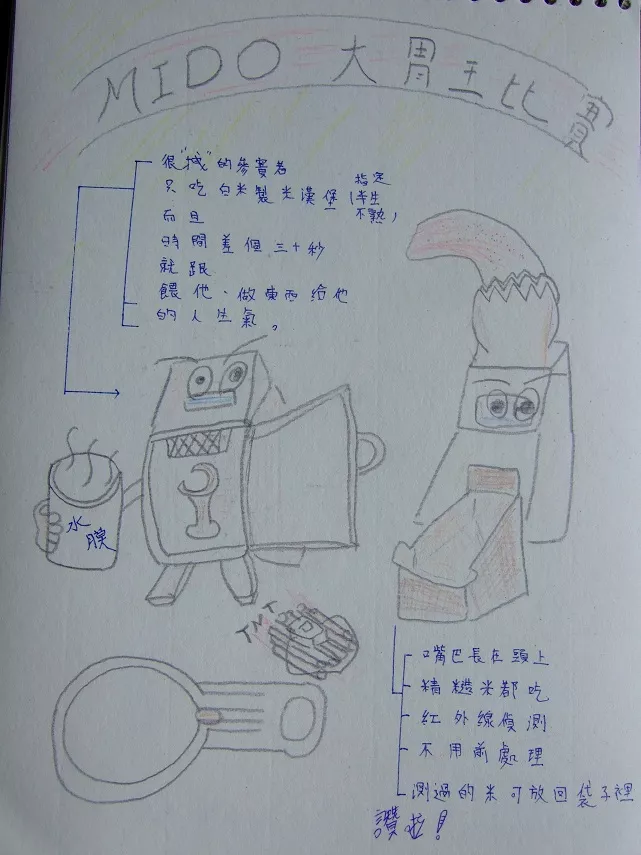 MIDO 大胃王比賽
很"機"的參賽者
只吃白米製米漢堡(指定半生不熟)
而且
時間差個三十秒
就跟
餵他、做東西給他
的人生氣。
水膜
TNT
口嘴巴長在頭上
精糙米都吃
紅外線偵測
不用前處理
測過的米可放回袋子裡
讚啦!